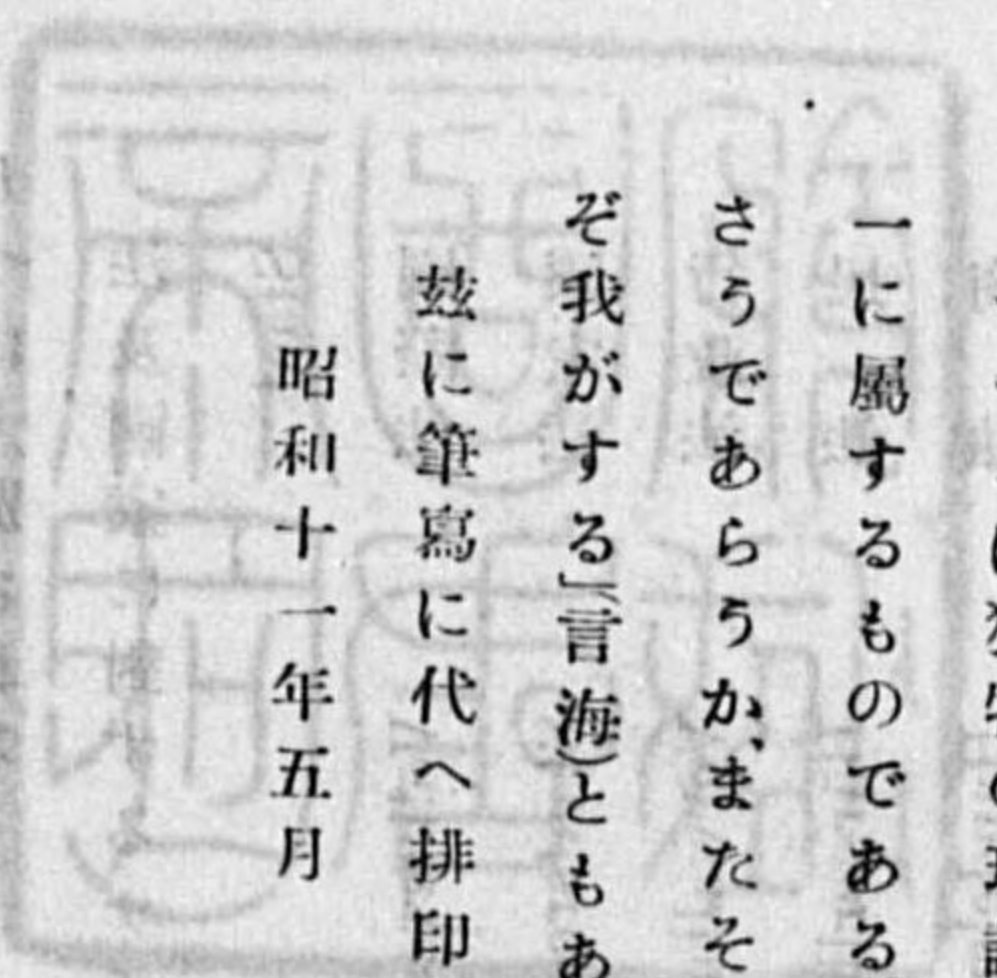 一に屬するものである
さうであらうか、またそ
ぞ我がする」(言海)ともあ
茲に筆寫に代へ排印
昭和十一年五月